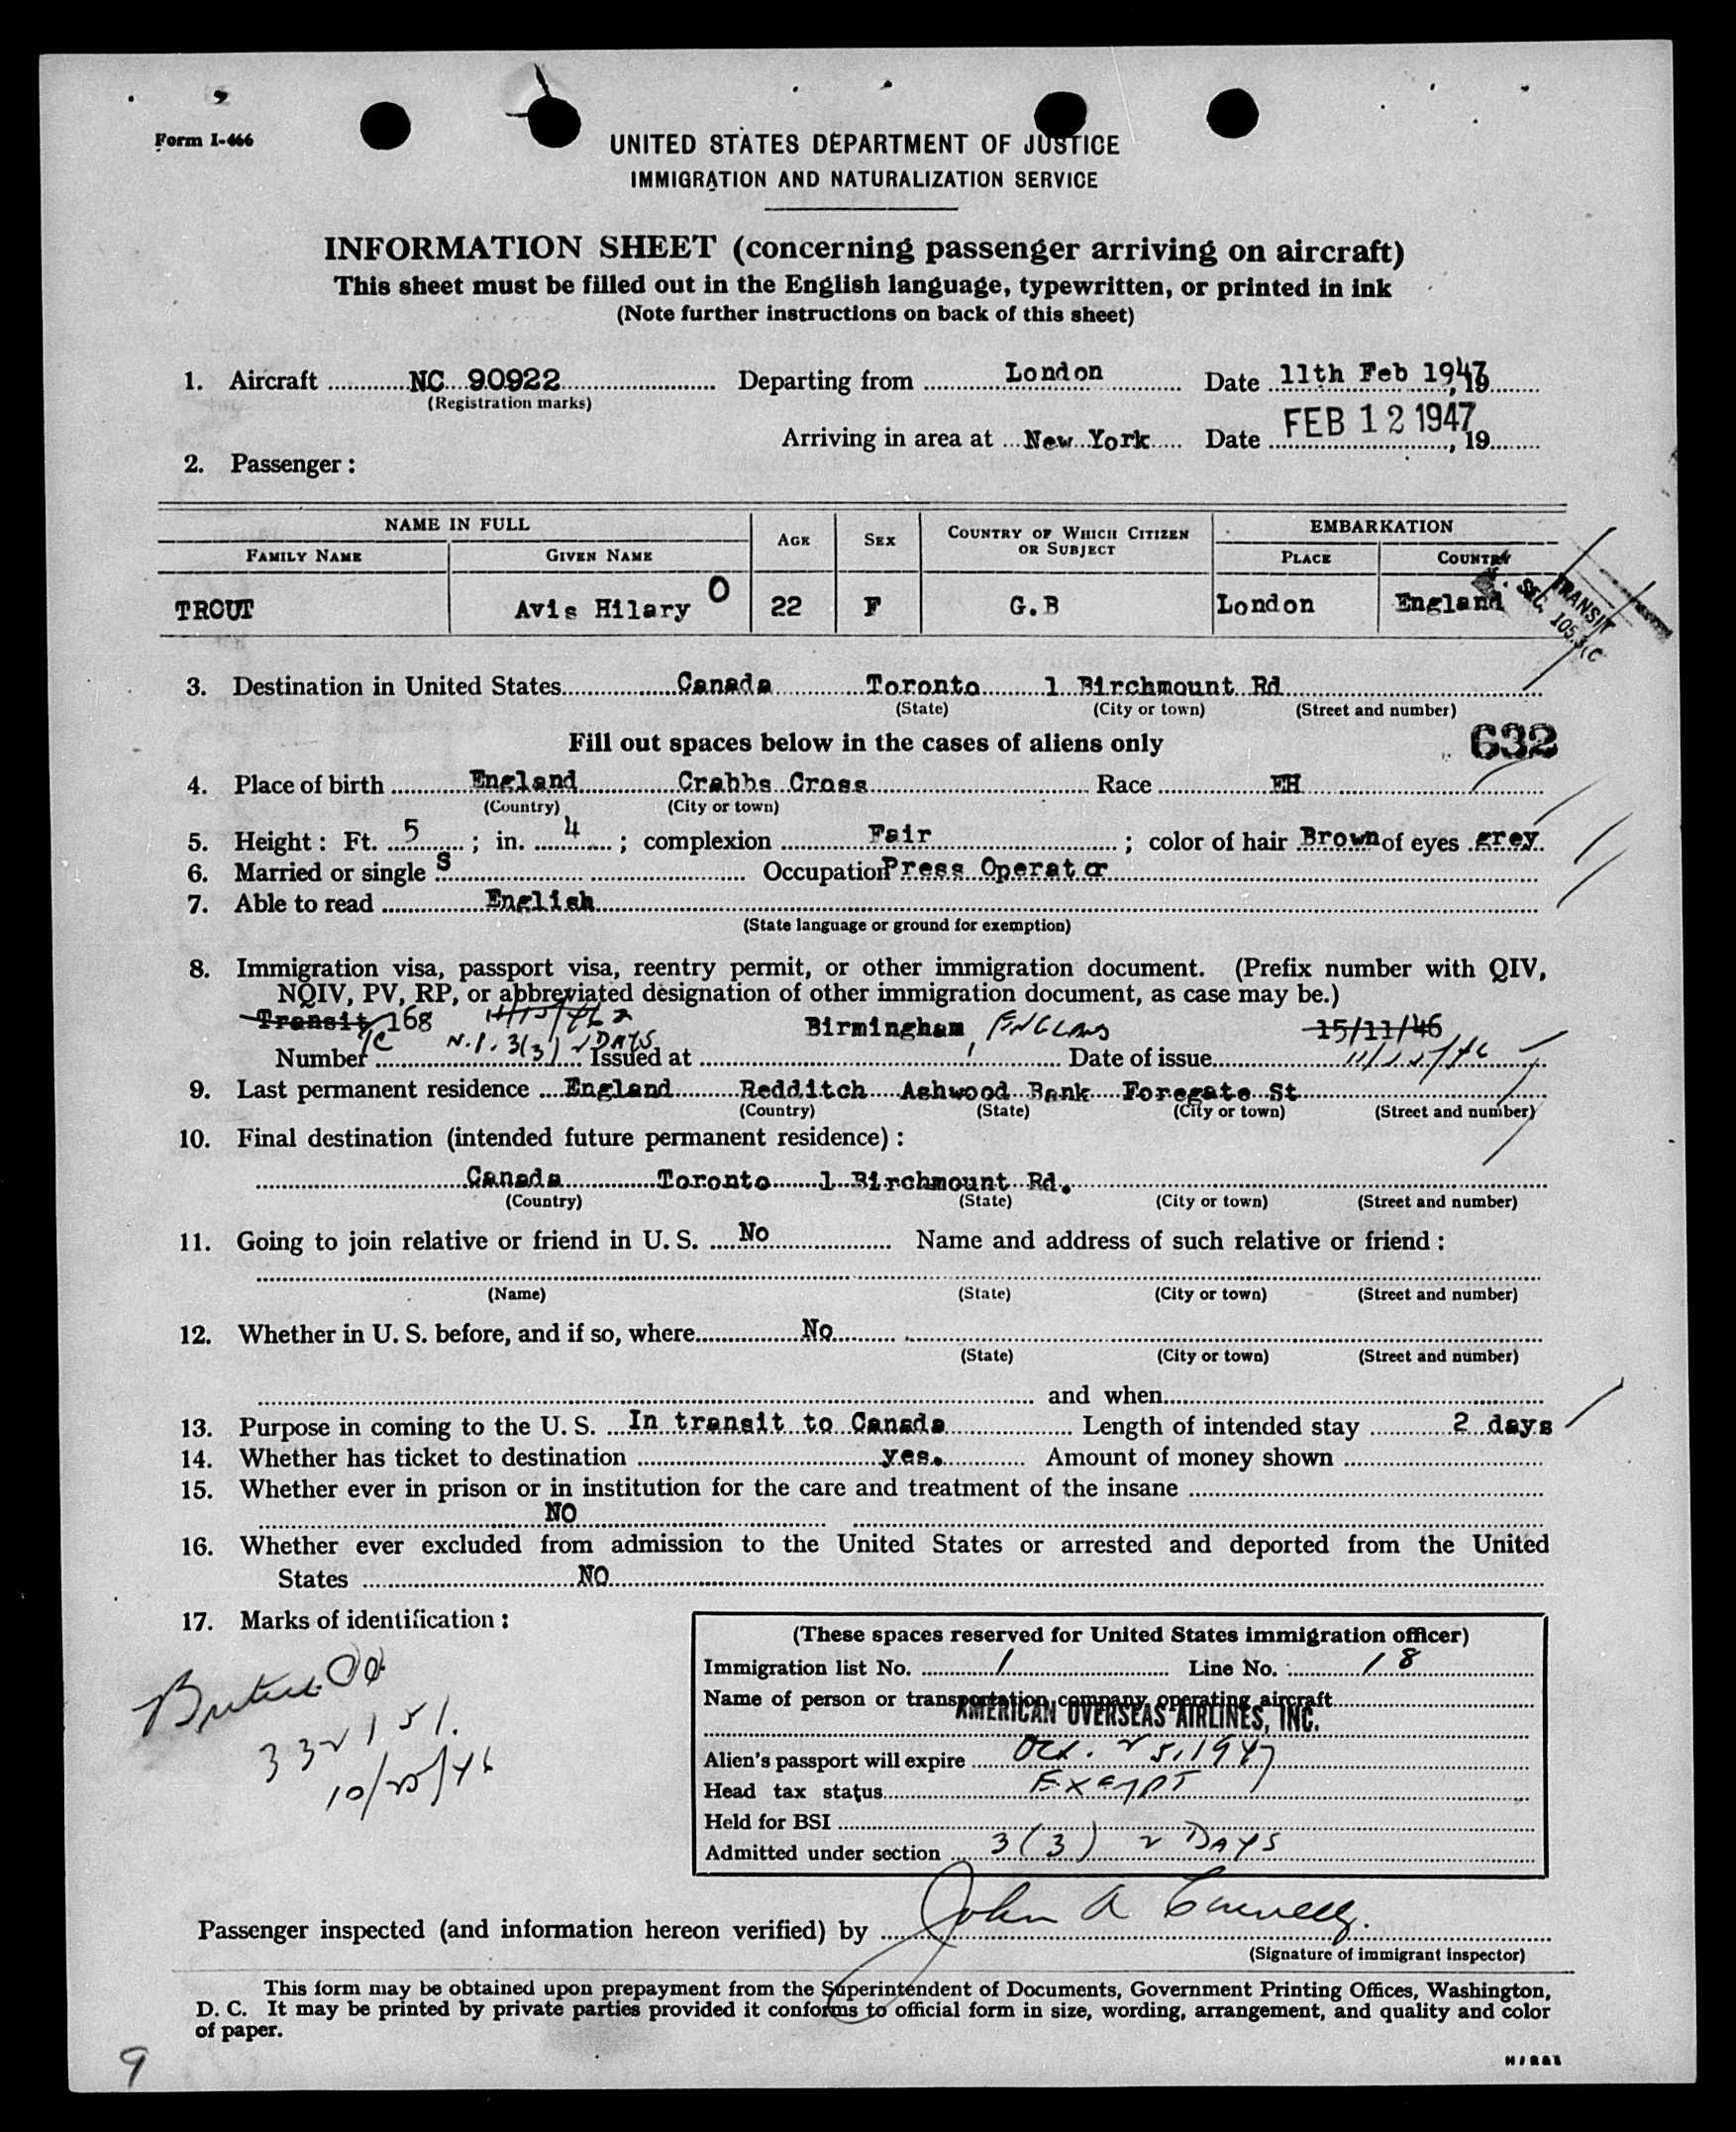 Form I-466
UNITED STATES DEPARTMENT OF JUSTICE
IMMIGRATION AND NATURALIZATION SERVICE
INFORMATION SHEET (concerning passenger arriving on aircraft)
This sheet must be filled out in the English language, typewritten, or printed in ink
(Note further instructions on back of this sheet)
1. Aircraft NC 90922 Departing from London Date 11th Feb 1947, 19
(Registration marks)
Arriving in area at New York Date FEB 12 1947, 19
2. Passenger:
NAME IN FULL AGE SEX COUNTRY OF WHICH CITIZEN OR SUBJECT EMBARKATION
FAMILY NAME GIVEN NAME PLACE COUNTRY
TROUT Avis Hilary O 22 F G.B London England
TRANSIT
SEC. 105.3(C
3. Destination in United States Canada Toronto 1 Birchmount Rd
(State) (City or town) (Street and number)
Fill out spaces below in the cases of aliens only 632
4. Place of birth England Crabbs Cross Race EH
(Country) (City or town)
5. Height: Ft. 5; in. 4; complexion Fair; color of hair Brown of eyes grey
6. Married or single S Occupation Press Operator
7. Able to read English
(State language or ground for exemption)
8. Immigration visa, passport visa, reentry permit, or other immigration document. (Prefix number with QIV,
NQIV, PV, RP, or abbreviated designation of other immigration document, as case may be.)
Transit 168 Birmingham, ENGLAND 15/11/46
Number N.I. 3(3) 2 DAYS Issued at Date of issue 11/15/46
9. Last permanent residence England Redditch Ashwood Bank Foregate St
(Country) (State) (City or town) (Street and number)
10. Final destination (intended future permanent residence):
Canada Toronto 1 Birchmount Rd.
(Country) (State) (City or town) (Street and number)
11. Going to join relative or friend in U. S. No Name and address of such relative or friend:
(Name) (State) (City or town) (Street and number)
12. Whether in U. S. before, and if so, where No
(State) (City or town) (Street and number)
and when
13. Purpose in coming to the U. S. In transit to Canada Length of intended stay 2 days
14. Whether has ticket to destination yes. Amount of money shown
15. Whether ever in prison or in institution for the care and treatment of the insane
NO
16. Whether ever excluded from admission to the United States or arrested and deported from the United
States NO
17. Marks of identification:
332151.
10/25/46
(These spaces reserved for United States immigration officer)
Immigration list No. 1 Line No. 18
Name of person or transportation company operating aircraft
AMERICAN OVERSEAS AIRLINES, INC.
Alien's passport will expire Oct. 25, 1947
Head tax status Exempt
Held for BSI
Admitted under section 3(3) 2 DAYS
Passenger inspected (and information hereon verified) by John A
(Signature of immigrant inspector)
This form may be obtained upon prepayment from the Superintendent of Documents, Government Printing Offices, Washington,
D. C. It may be printed by private parties provided it conforms to official form in size, wording, arrangement, and quality and color
of paper.
9